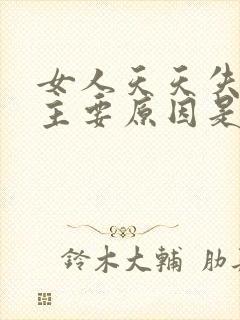 女人天天失
主要原因是
鈴木大輔 肋